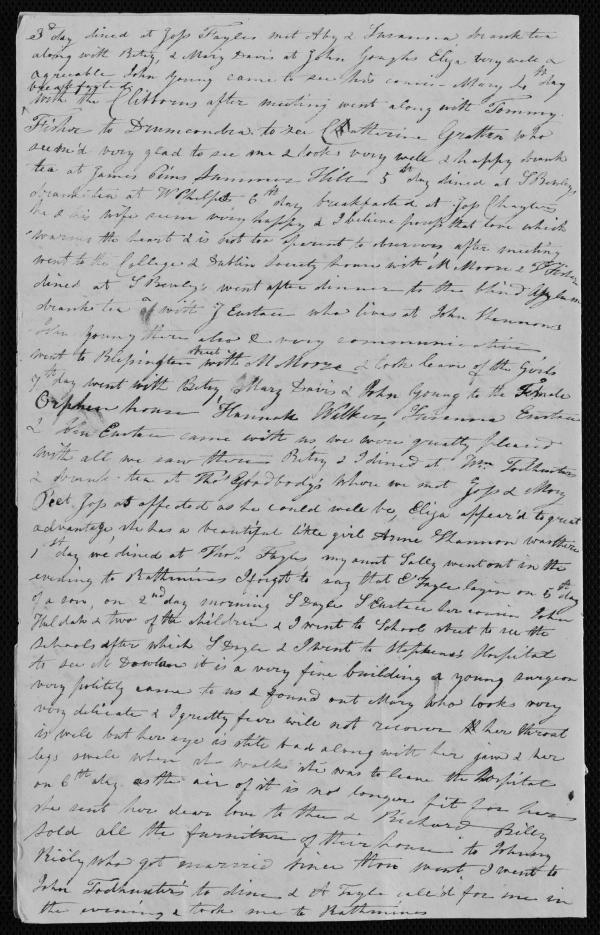 3d day dined at Jos Fayles met Aby & Susanna drank tea
along with Betsy, & Mary Davis at John Goughs Eliza very well &
agreeable John Young came to see his cousin Mary 4th day
breakfasted
with the Clibborns after meeting went along with Tommy
Fisher to Drumcondra to see Catherine Grattan who
seem'd very glad to see me & looks very well & happy drank
tea at James Pims Summer Hill 5th day dined at S Bewleys
drank tea at W Phelps 6th day breakfasted at Jos Chaytors
he & his wife seem very happy & I believe possess that love which
warms the heart & is not too aparent to observers after meeting
went to the College & Dublin Society house with M Moore & T Fisher
dined at S Bewley's went after dinner to the blind Asylum
drank tea with J Eustace who lives at John Shannons
John Young there also & very communicative
went to Blessington street with M Moore & took leave of the Girls
7th day went with Betsy & Mary Davis & John Young to the Female
Orphan house Hannah Wilkes, Eustace
& Eustace came with us we were greatly pleased
with all we saw there Betsy & I dined at Wm Todhunters
& drank tea at Thos Goodbody's where we met Jos & Mary
Peet Jos as affected as he could well be, Eliza appear'd to great
advantage she has a beautiful little girl Anne Shannon was there
1st day we dined at Thos Fayles my aunt Sally went out in the
evening to Rathmines I forgot to say that E Fayle layin on 5th day
of a son, on 2nd day morning S Doyle S Eustace her cousin John
Huldah & two of the children & I went to School street to see the
Schools after which S Doyle & I went to Stephens's Hospital
to see M Dowlan it is a very fine building a young surgeon
very politely came to us & found out Mary who looks very
very delicate & I greatly fear will not recover her throat
is well but her eye is still bad along with her jaw & her
legs swell when she walks she was to leave the Hospital
on 6th day as the air of it is no longer fit for her
she sent her dear love to thee & Richard Billy
sold all the furniture of their house to Johnny
Kiely who got married since thou went I went to
John Todhunter's to dine & A Fayle call'd for me in
the evening & took me to Rathmines